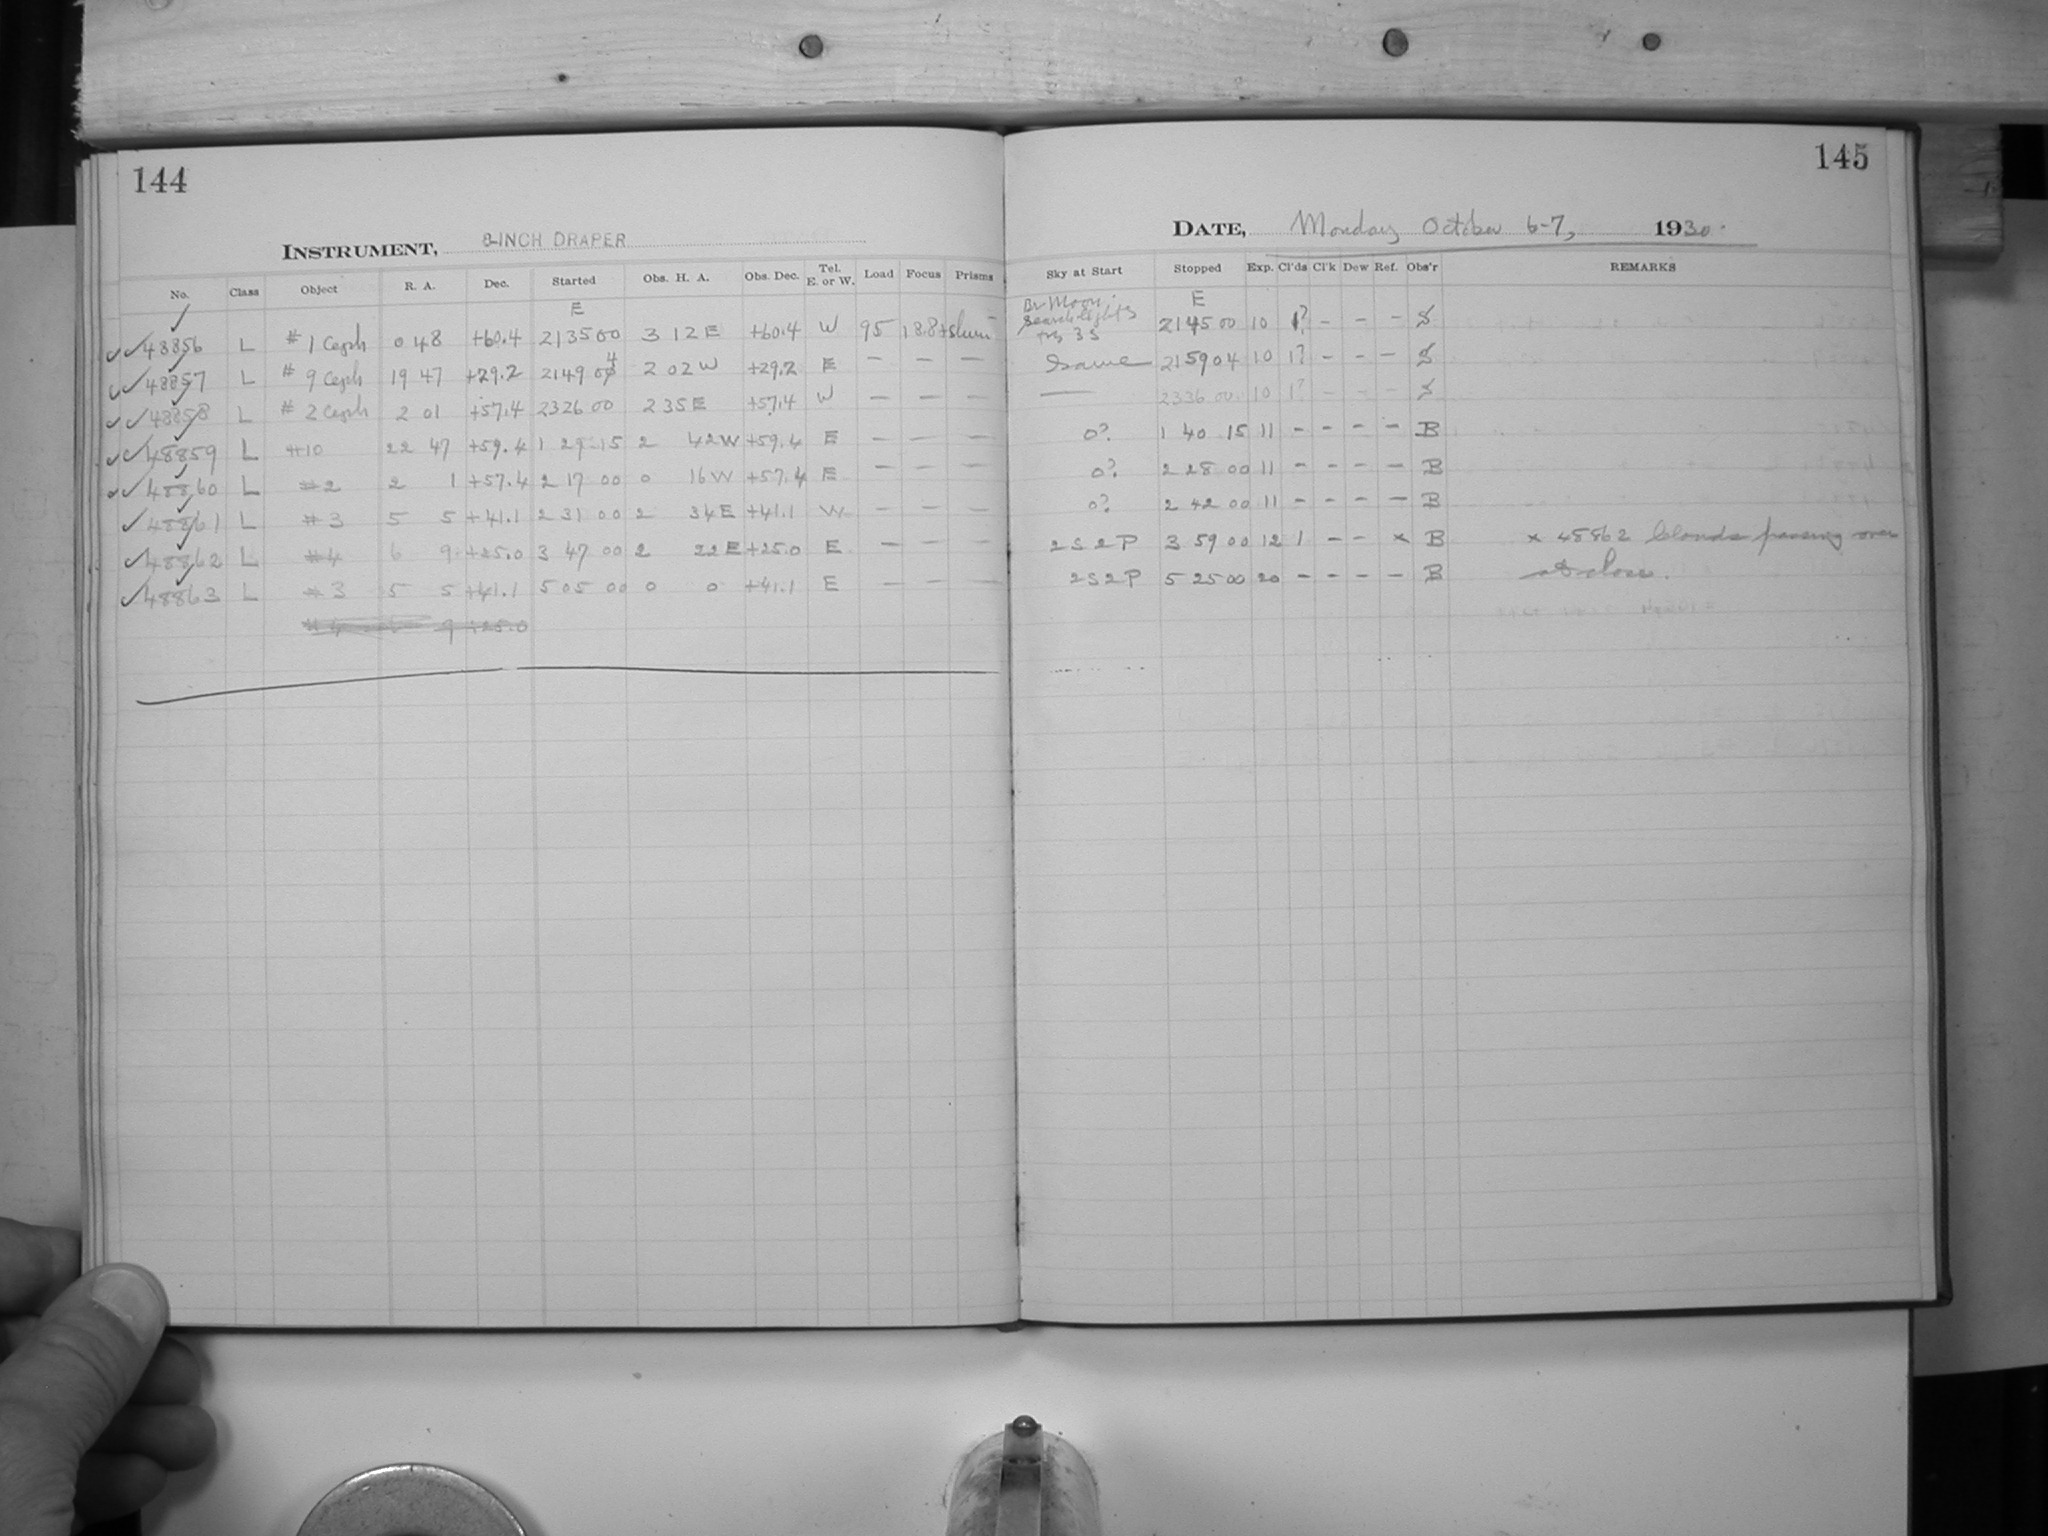 144
INSTRUMENT, 8-INCH DRAPER
No. Class Object R. A. Dec. Started Obs. H. A. Obs. Dec. Tel. E. or W. Load Focus Prisms
E
48856 L # 1 Ceph 0 48 +60.4 21 35 00 3 12 E +60.4 W 95 18.8
48857 L # 9 Ceph 19 47 +29.2 21 49 04 2 02 W +29.2 E — — —
48858 L # 2 Ceph 2 01 +57.4 23 26 00 2 35 E +57.4 W — — —
48859 L #10 22 47 +59.4 1 29 15 2 42 W +59.4 E — — —
48860 L #2 2 1 +57.4 2 17 00 0 16 W +57.4 E — — —
48861 L #3 5 5 +41.1 2 31 00 2 34 E +41.1 W — — —
48862 L #4 6 9 +25.0 3 47 00 2 22 E +25.0 E — — —
48863 L #3 5 5 +41.1 5 05 00 0 0 +41.1 E — — —
#4 9 +25.0
145
DATE, Monday October 6-7, 1930.
Sky at Start Stopped Exp. Cl'ds Cl'k Dew Ref. Obs'r REMARKS
Br Moon. E
Searchlights 21 45 00 10 1? - - - S
3 S
Same 21 59 04 10 1? - - - S
— 23 36 00 10 1? - - - S
0? 1 40 15 11 - - - - B
0? 2 28 00 11 - - - - B
0? 2 42 00 11 - - - - B
2 S 2 P 3 59 00 12 1 - - x B x 48862 Clouds passing over
2 S 2 P 5 25 00 20 - - - - B at close.